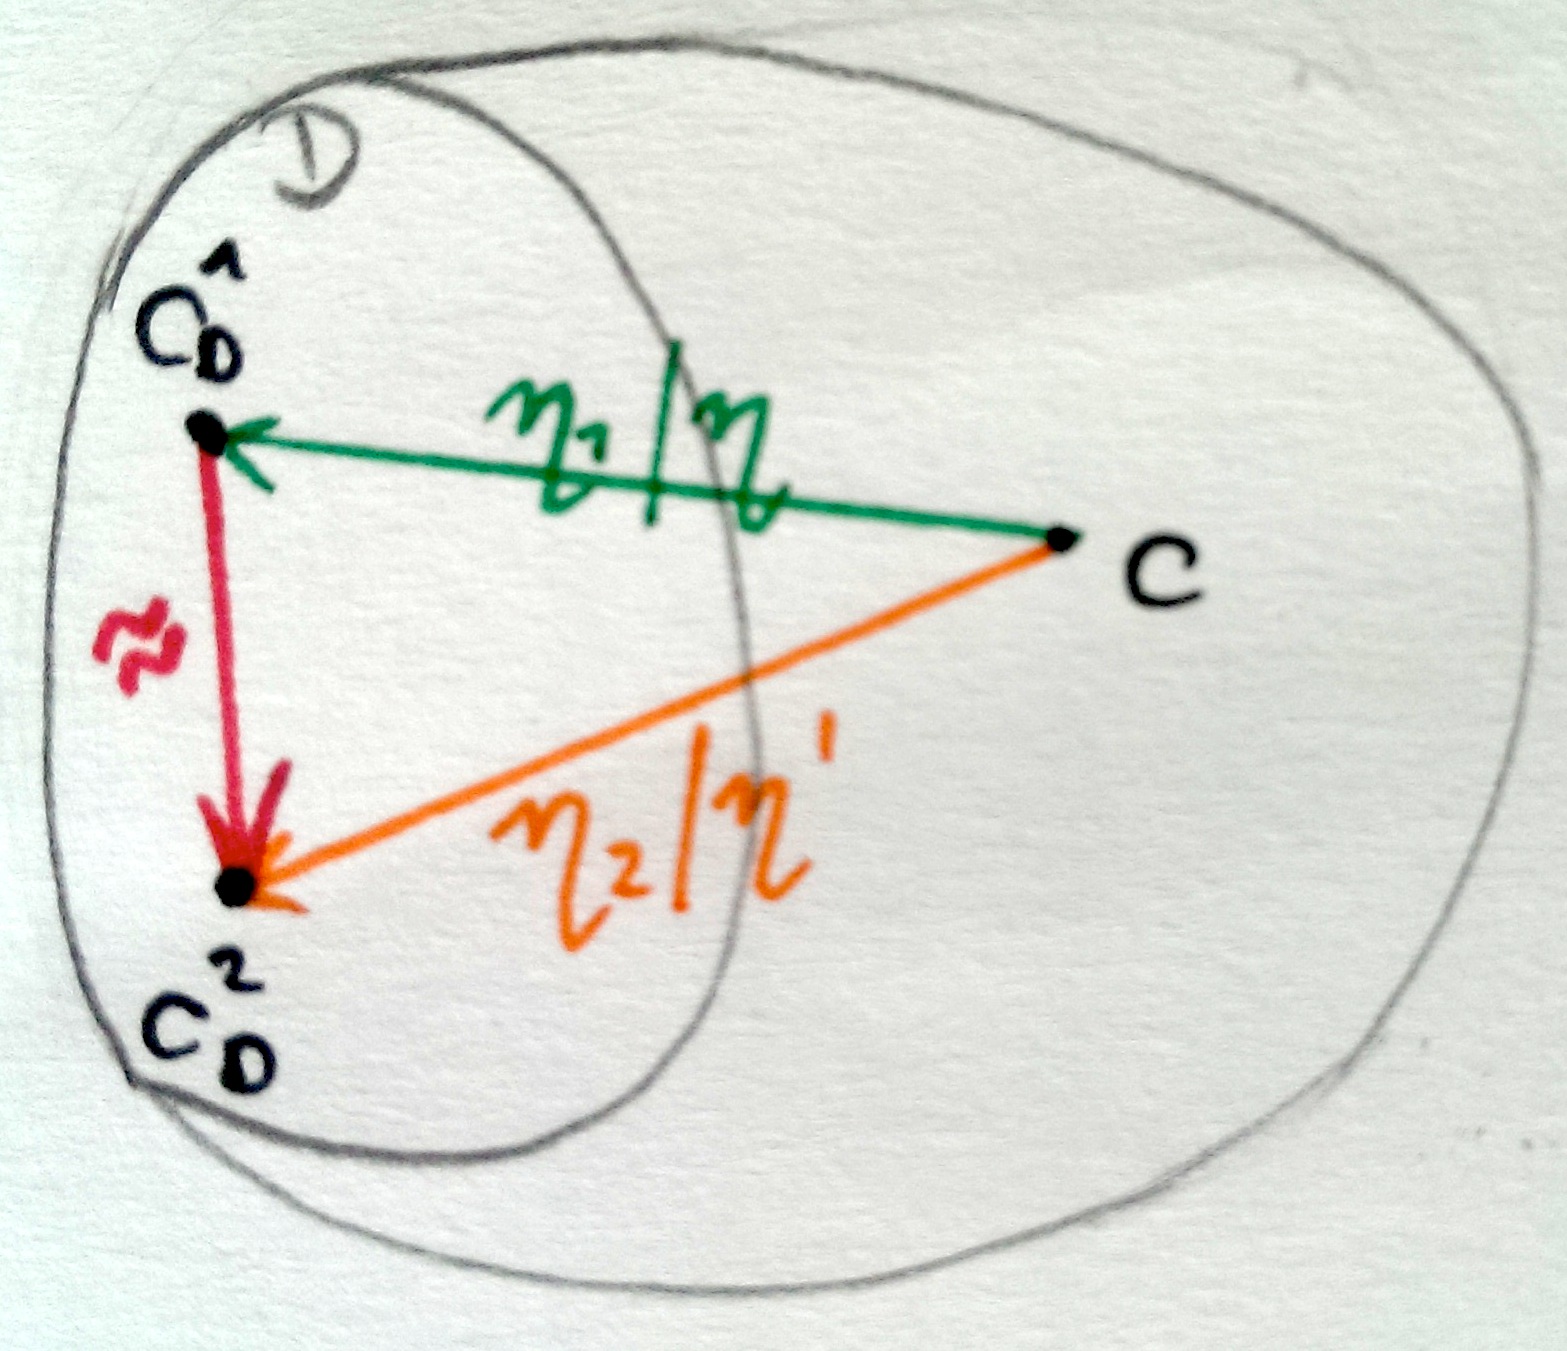 D
C_D^1
η₁|η
C
≈
η₂|η'
C_D^2